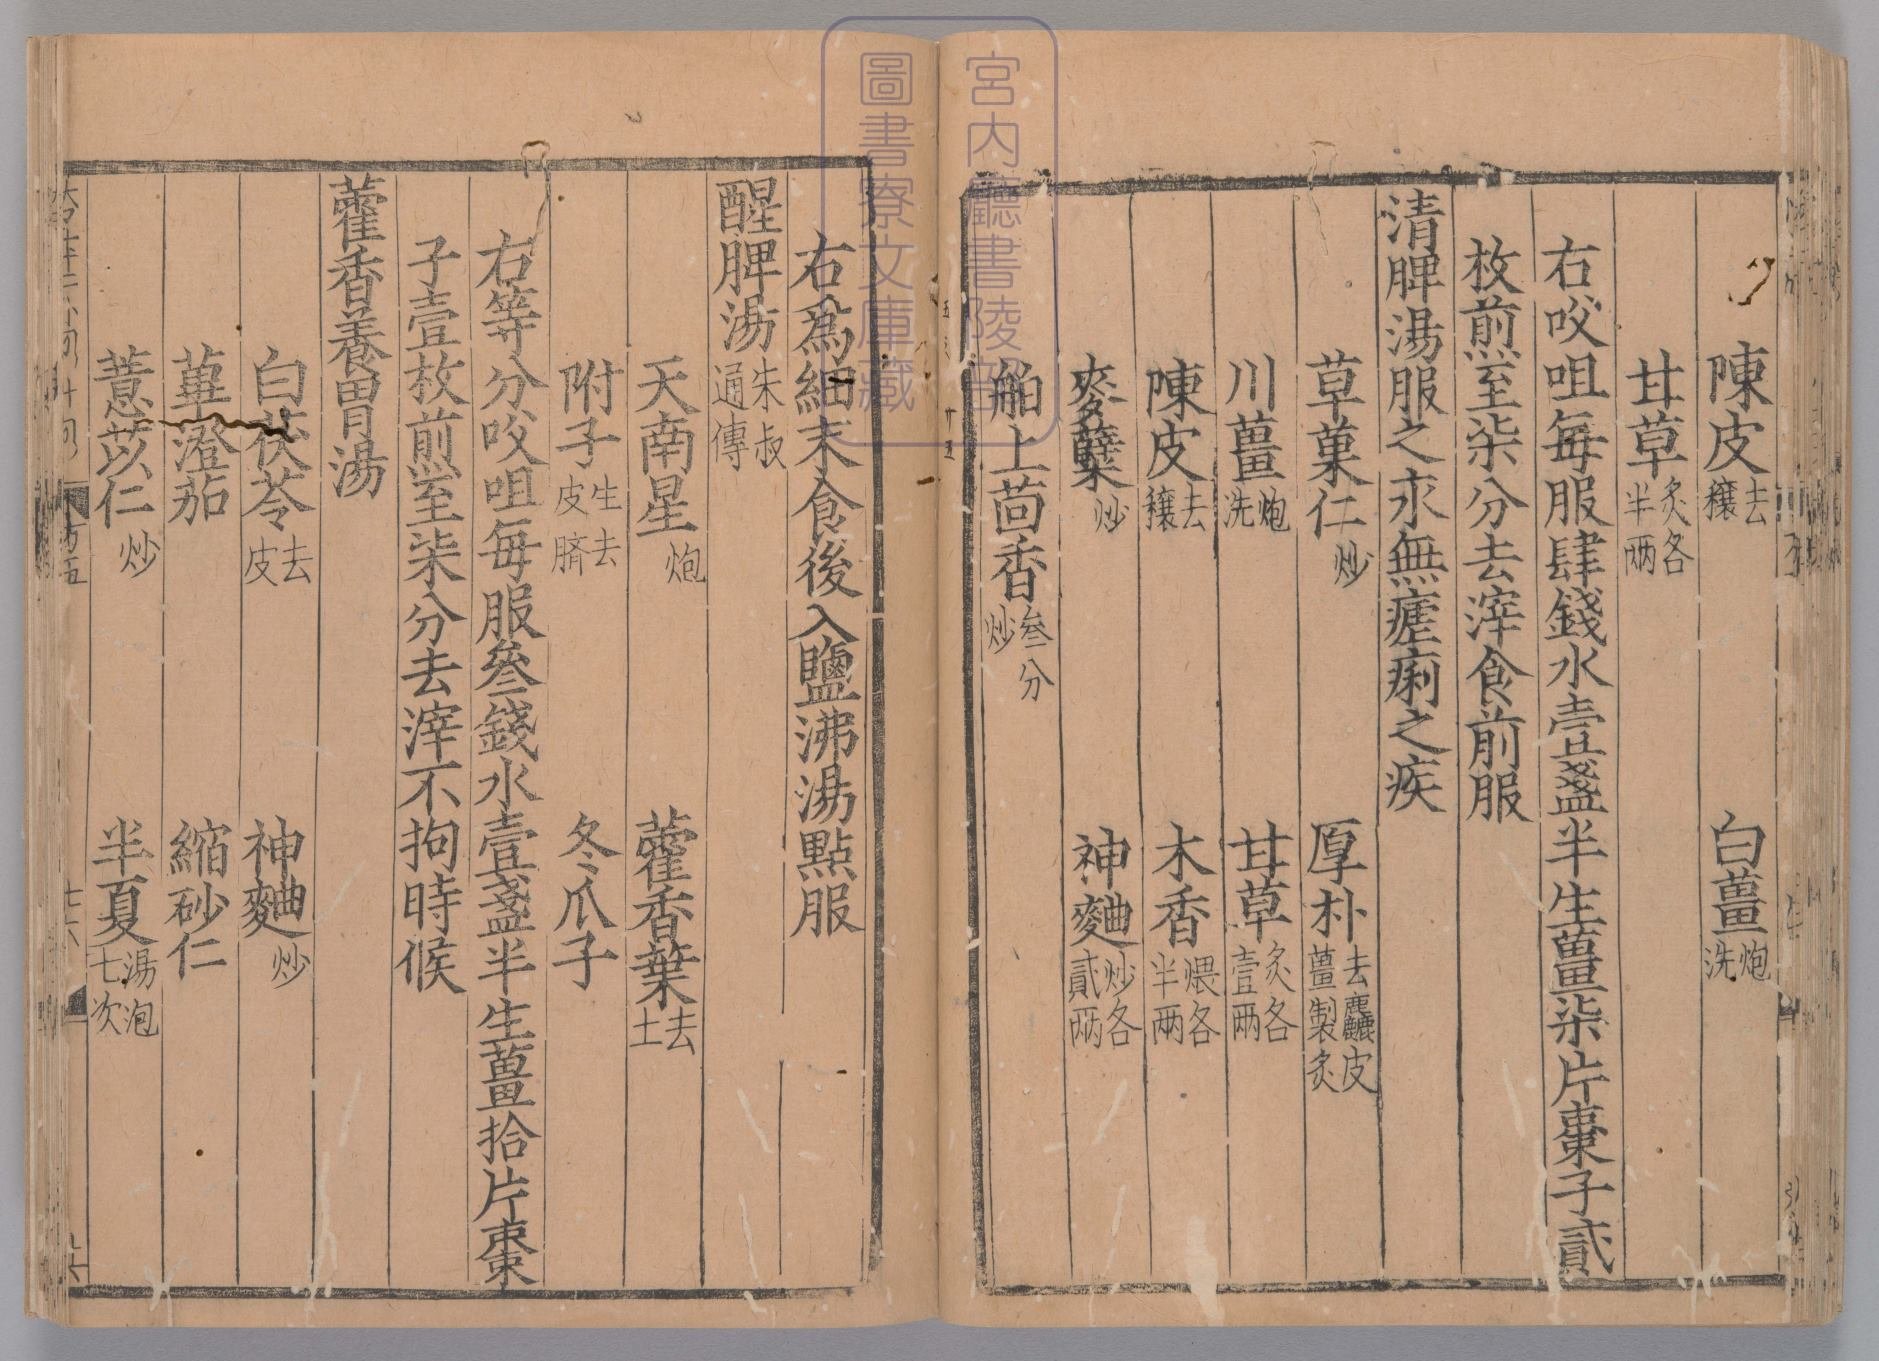 陳皮去穰 白薑炮洗
甘草炙各半兩
右㕮咀每服肆錢水壹盞半生薑柒片棗子貳
枚煎至柒分去滓食前服
清脾湯服之永無瘧痢之疾
草菓仁炒 厚朴去麤皮薑製炙
川薑炮洗 甘草炙各壹兩
陳皮去穰 木香煨各半兩
麥糵炒 神麯炒各貳兩
舶上茴香叁分炒
右爲細末食後入鹽沸湯點服
醒脾湯朱叔通傳
天南星炮 藿香葉去土
附子生去皮臍 冬瓜子
右等分㕮咀每服叄錢水壹盞半生薑拾片棗
子壹枚煎至柒分去滓不拘時候
藿香養胃湯
白茯苓去皮 神麯炒
蓽澄茄 縮砂仁
薏苡仁炒 半夏湯泡七次
宮内廳書陵部
圖書寮文庫藏